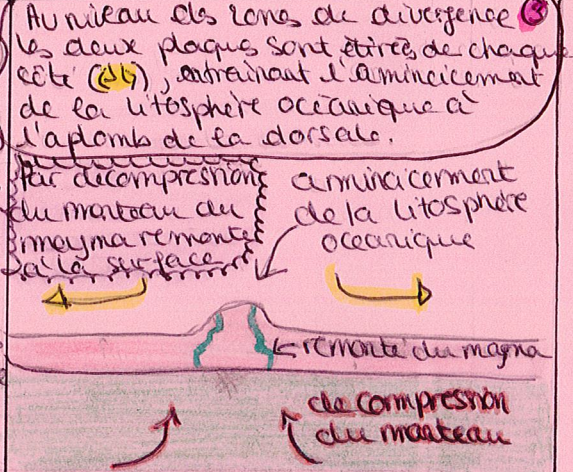 Au niveau des zones de divergence ③
les deux plaques sont étirés de chaque
côté (↓↳), entrainant l'amincicement
de la litosphère océanique à
l'aplomb de la dorsale.
Par decompression
du manteau du
magma remonte
à la surface
amincicement
de la litosphère
oceanique
remonté du magma
de compression
du manteau